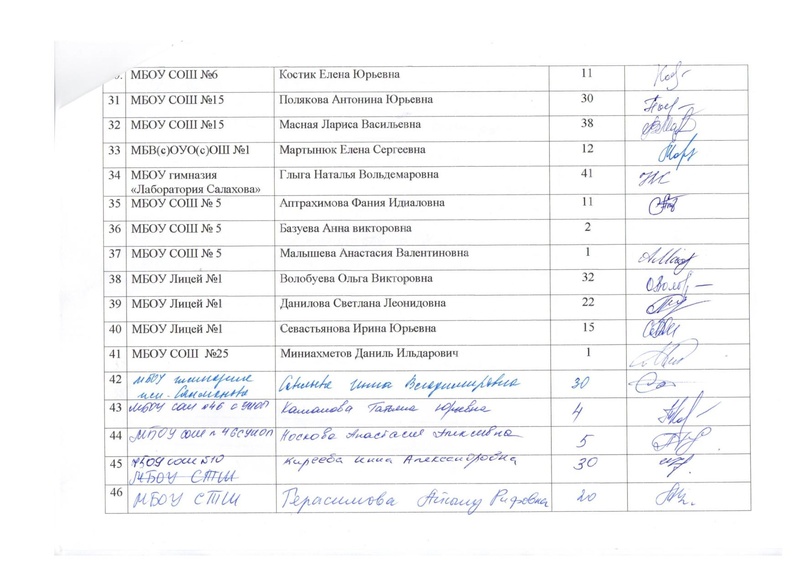 МБОУ СОШ №6 Костик Елена Юрьевна 11
31 МБОУ СОШ №15 Полякова Антонина Юрьевна 30
32 МБОУ СОШ №15 Масная Лариса Васильевна 38
33 МБВ(с)ОУО(с)ОШ №1 Мартынюк Елена Сергеевна 12
34 МБОУ гимназия Глыга Наталья Вольдемаровна 41
«Лаборатория Салахова»
35 МБОУ СОШ № 5 Аптрахимова Фания Идиаловна 11
36 МБОУ СОШ № 5 Базуева Анна викторовна 2
37 МБОУ СОШ № 5 Малышева Анастасия Валентиновна 1
38 МБОУ Лицей №1 Волобуева Ольга Викторовна 32
39 МБОУ Лицей №1 Данилова Светлана Леонидовна 22
40 МБОУ Лицей №1 Севастьянова Ирина Юрьевна 15
41 МБОУ СОШ №25 Миниахметов Даниль Ильдарович 1
42 МБОУ гимназия Инна Владимировна 30
43 МБОУ сош №46 с УИОП Татьяна Юрьевна 4
44 МБОУ сош № 46 с УИОП Носкова Анастасия Алексеевна 5
45 МБОУ сош №10 Киреева Инна Александровна 30
МБОУ СТШ
46 МБОУ СТШ Герасимова Айгуль Рифовна 20